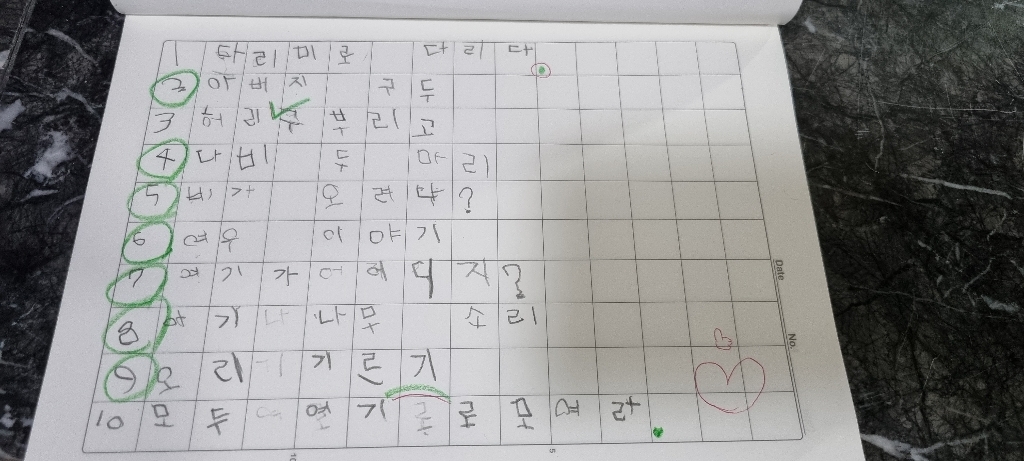 1 다리미로 다리다
2 아버지 구두
3 허리 부리고
4 나비 두 마리
5 비가 오려나?
6 여우 이야기
7 여기가 어디지?
8 악기 나무 소리
9 오리 기르기
10 모두 여기로 모여라
Date
No.